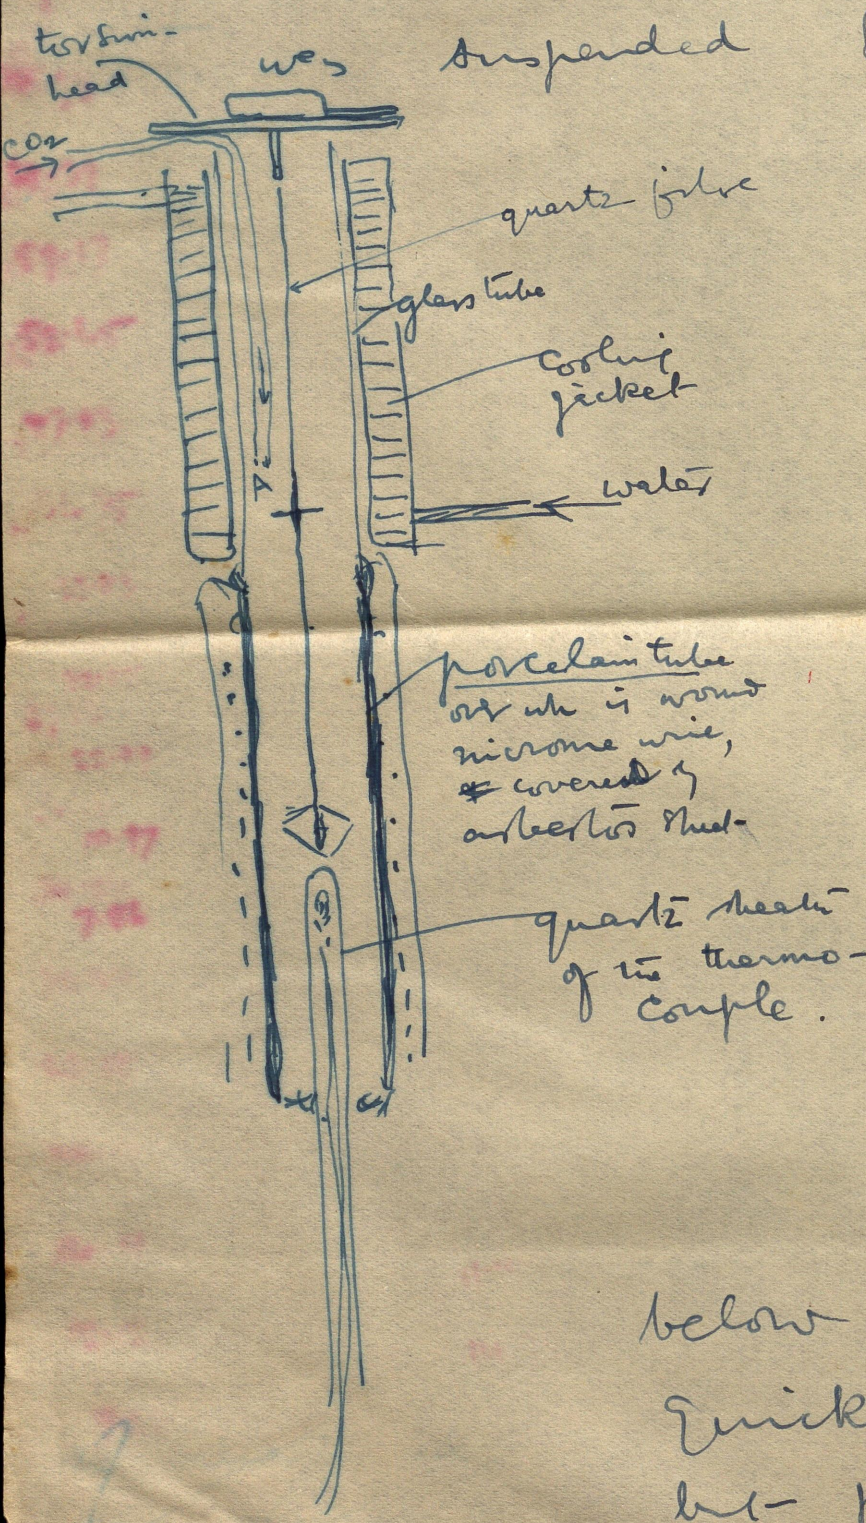 torsion-
head
suspended
CO2
quartz fibre
glass tube
cooling
jacket
water
porcelain tube
over wh is wound
nicrome wire,
covered by
asbestos sheet
quartz sheath
of the thermo-
couple.
below
Quick
but